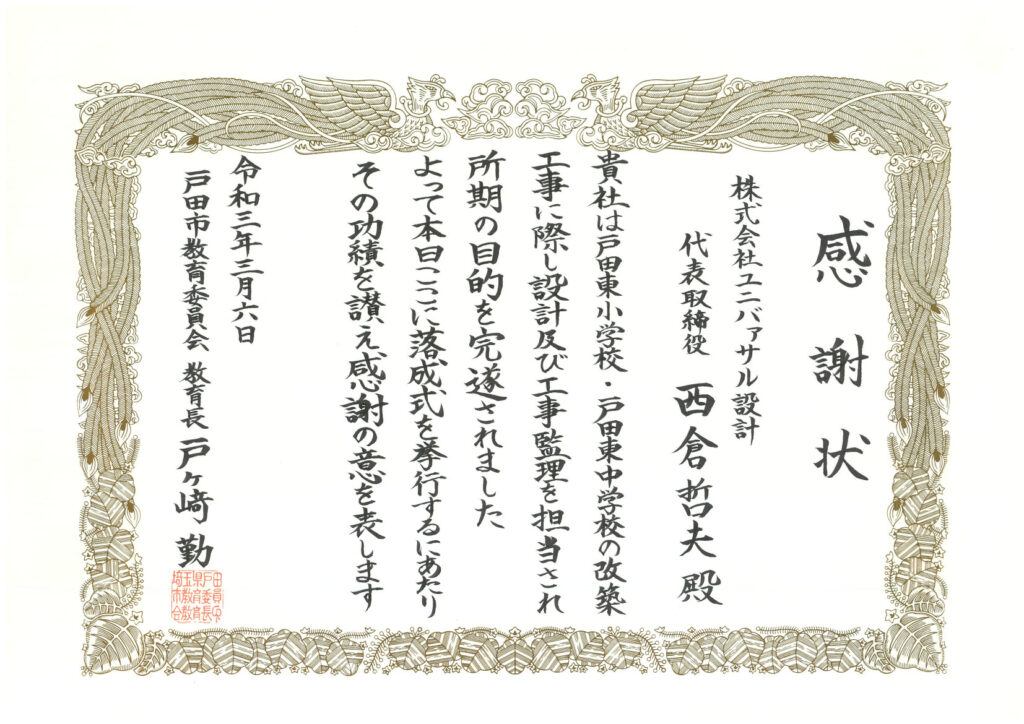 感謝状
株式会社ユニバァサル設計
代表取締役 西倉哲夫殿
貴社は戸田東小学校・戸田東中学校の改築
工事に際し設計及び工事監理を担当され
所期の目的を完遂されました
よって本日ここに落成式を挙行するにあたり
その功績を讃え感謝の意を表します
令和三年三月六日
戸田市教育委員会 教育長 戸ヶ﨑勤